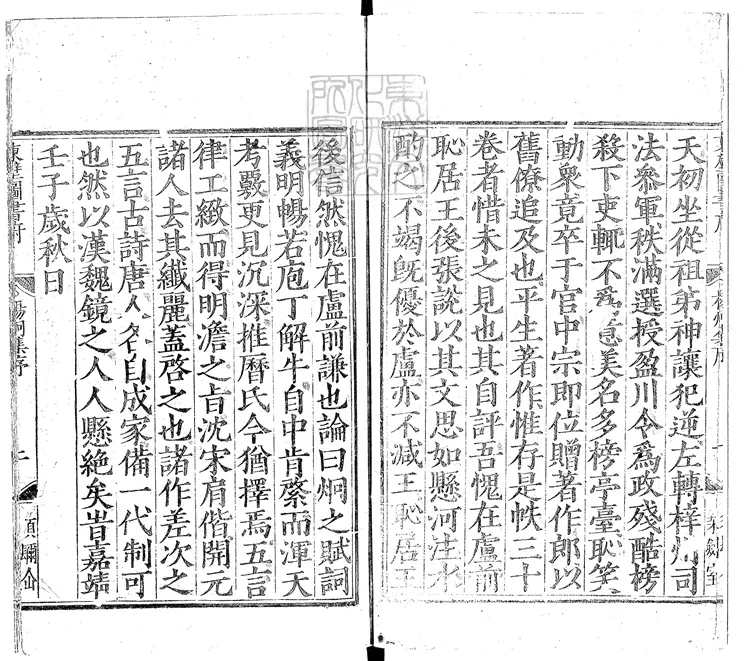 天初坐從祖弟神讓犯逆左轉梓州司
法叅軍秩滿選授盈川令爲政殘酷榜
殺下吏輒不爲意美名多榜亭臺耻笑
動衆竟卒于官中宗即位贈著作郎以
舊僚追及也平生著作惟存是帙三十
卷者惜未之見也其自評吾愧在盧前
恥居王後張說以其文思如懸河注水
酌之不竭旣優於盧亦不減王恥居王
後信然愧在盧前謙也論曰炯之賦詞
義明暢若庖丁解牛自中肯綮而渾天
考覈更見沉深推曆氏今猶擇焉五言
律工緻而得明澹之旨沈宋肩偕開元
諸人去其纖麗蓋啓之也諸作差次之
五言古詩唐人各自成家備一代制可
也然以漢魏鏡之人人懸絕矣旹嘉靖
壬子歲秋日
東壁圖書府
楊炯集序